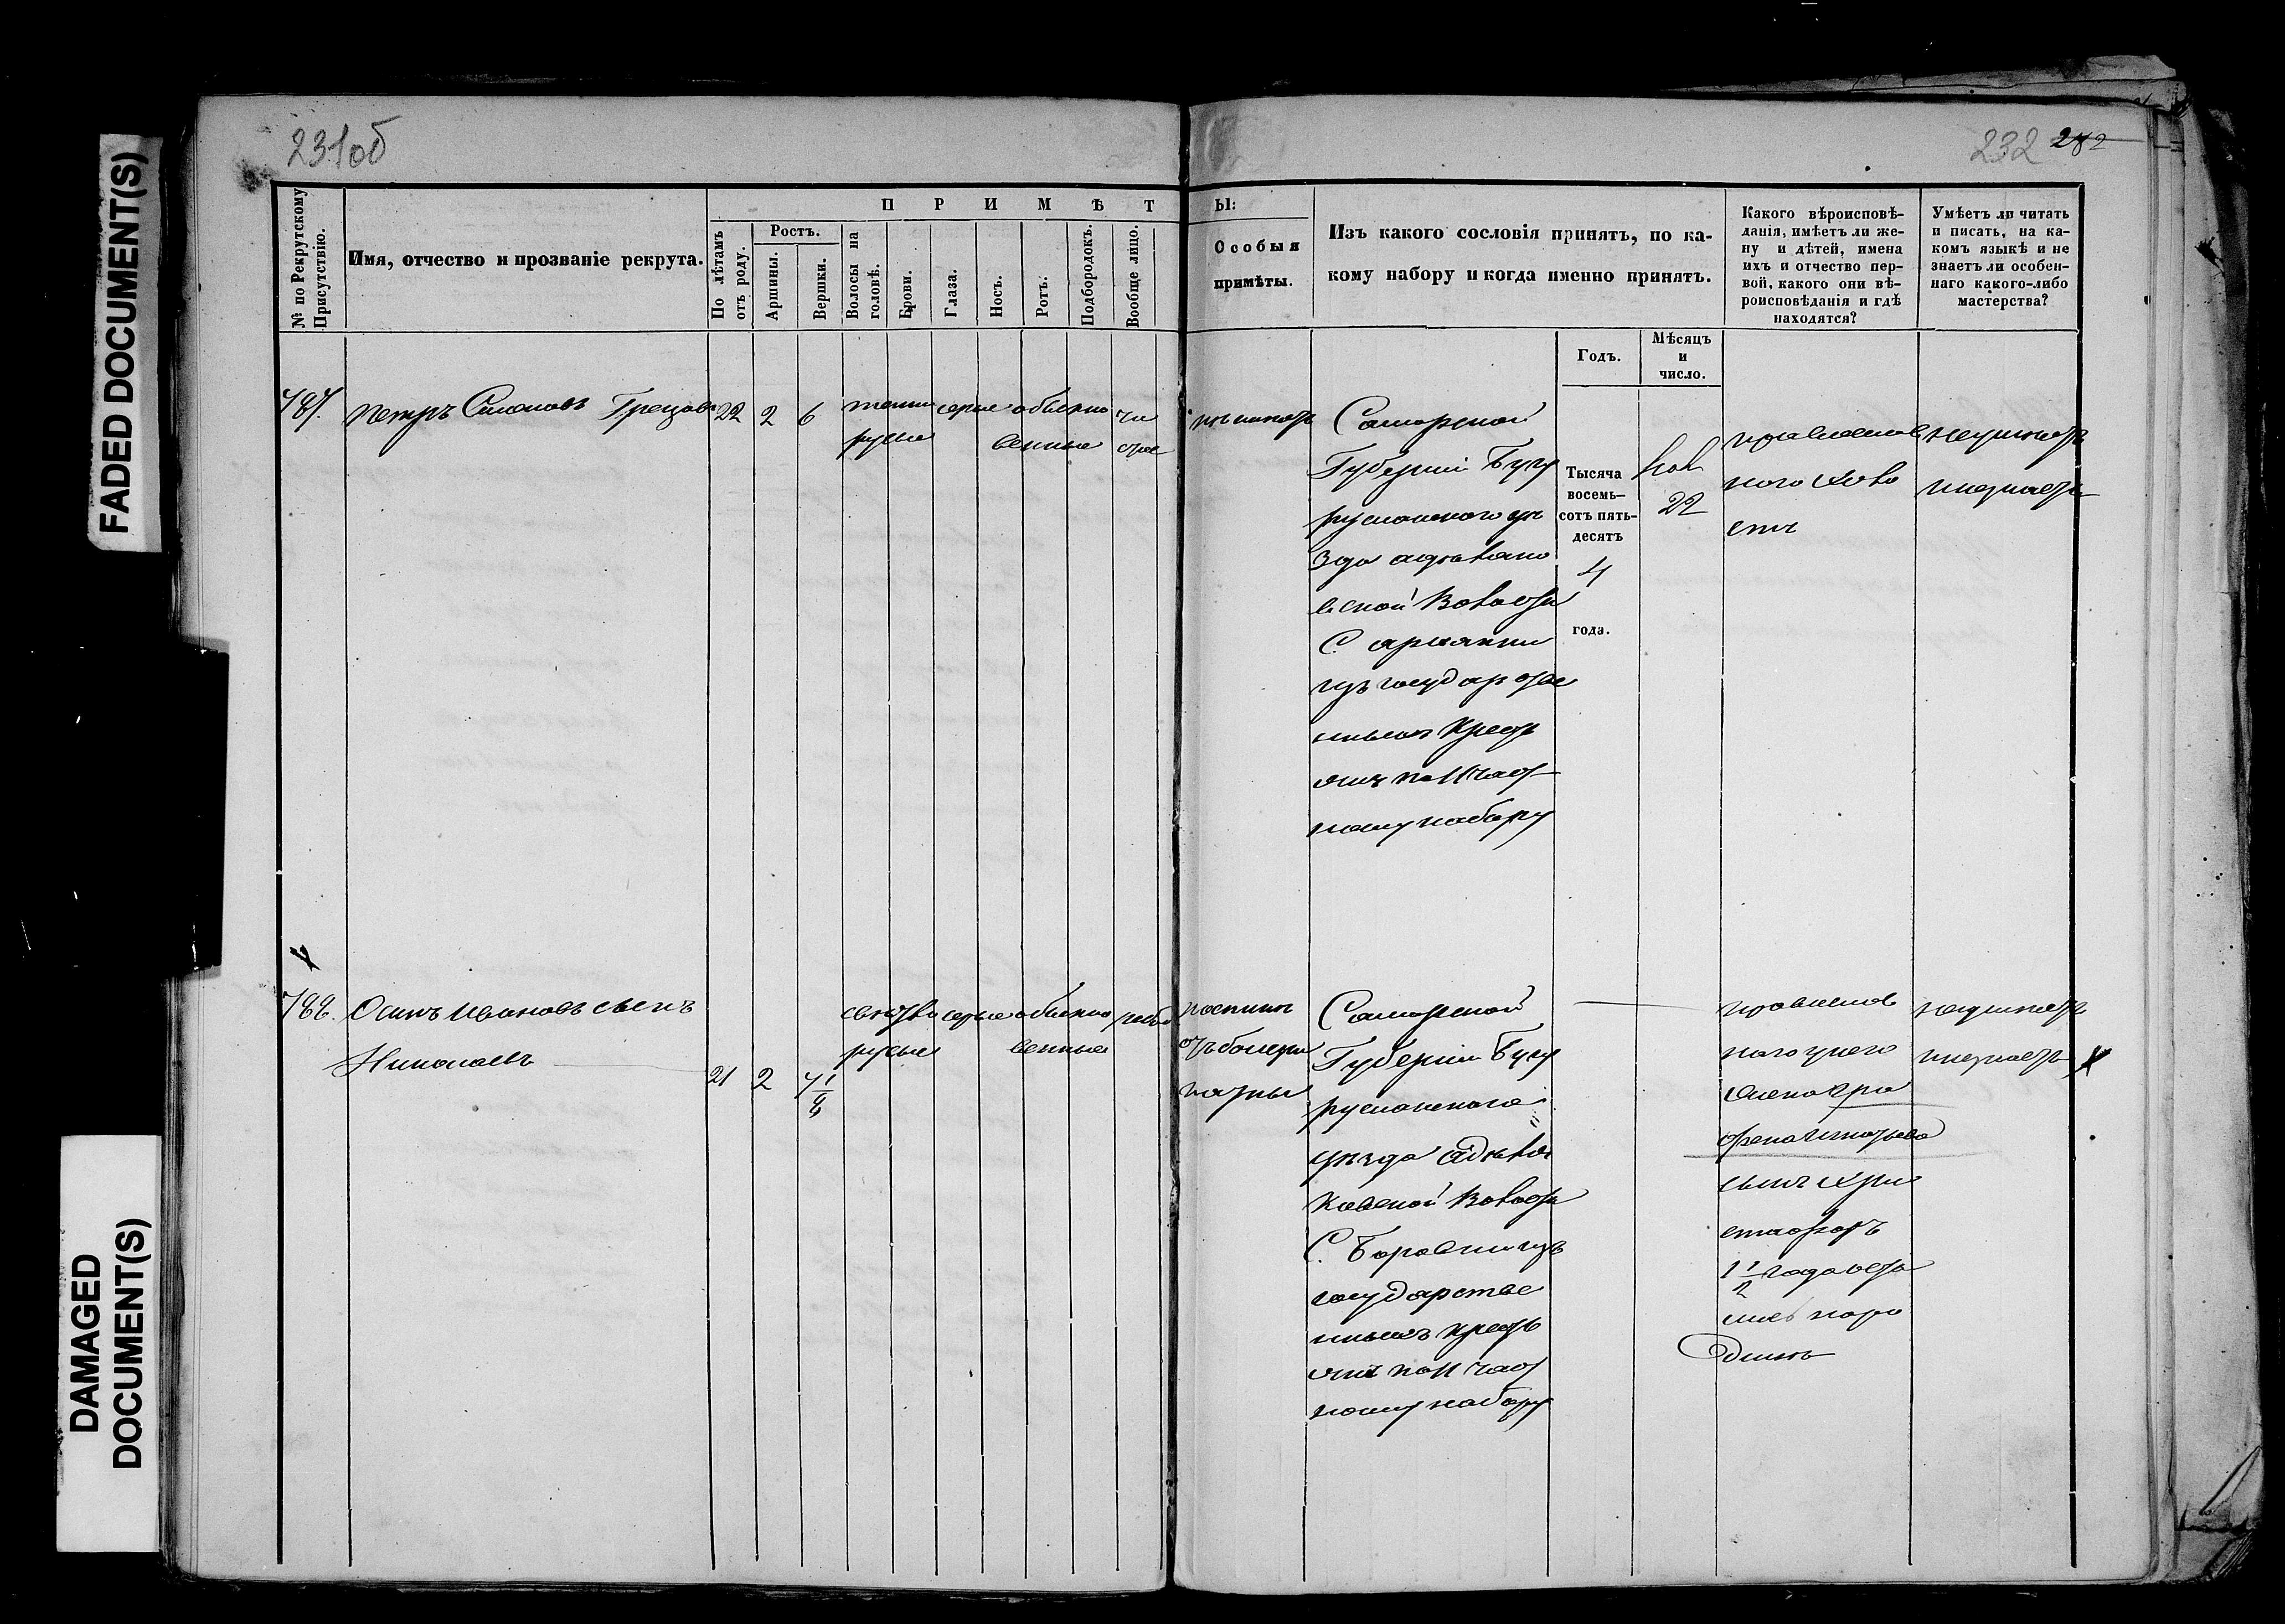 FADED DOCUMENT(S)
DAMAGED
DOCUMENT(S)
231об
232 282
№ по Рекрутскому
Присутствію.
Имя, отчество и прозваніе рекрута.
П Р И М Ѣ Т
По лѣтамъ
отъ роду.
Ростъ.
Аршины.
Вершки.
Волосы на
головѣ.
Брови.
Глаза.
Носъ.
Ротъ.
Подбородокъ.
Вообще лицо.
Ы:
Особыя
примѣты.
Изъ какого сословія принятъ, по ка-
кому набору и когда именно принятъ.
Какого вѣроисповѣ-
данія, имѣетъ ли же-
ну и дѣтей, имена
ихъ и отчество пер-
вой, какого они вѣ-
роисповѣданія и гдѣ
находятся?
Умѣетъ ли читать
и писать, на ка-
комъ языкѣ и не
знаетъ ли особен-
наго какого-либо
мастерства?
Годъ.
Мѣсяцъ
и
число.
787. Петръ Симоновъ
22 2 6
темно
русые
серые
обыкно
венные
чи
стое
Самарской
Губерніи Бугу
русланскаго уѣ
зда
вской Волости
С.
изъ государстве
нныхъ Крест
янъ по 11 част
ному набору
Тысяча
восемь-
сотъ пять-
десятъ
4
года.
Ноя
22
православ
наго холо
стъ
неумѣетъ
и незнаетъ
788. Осипъ Ивановъ сынъ
Николаевъ
21 2 7 1/8
светло
русые
серые
обыкно
венные
Самарской
Губерніи Бугу
русланскаго
уѣзда
ковской Волости
С. Боровки изъ
государстве
нныхъ крест
янъ по 11 част
ному набору
православ
наго у него
жена Агра
фена Игнатьева
сынъ Хри
стофоръ
1 1/2 года
на роди
дине
неумѣетъ
и незнаетъ